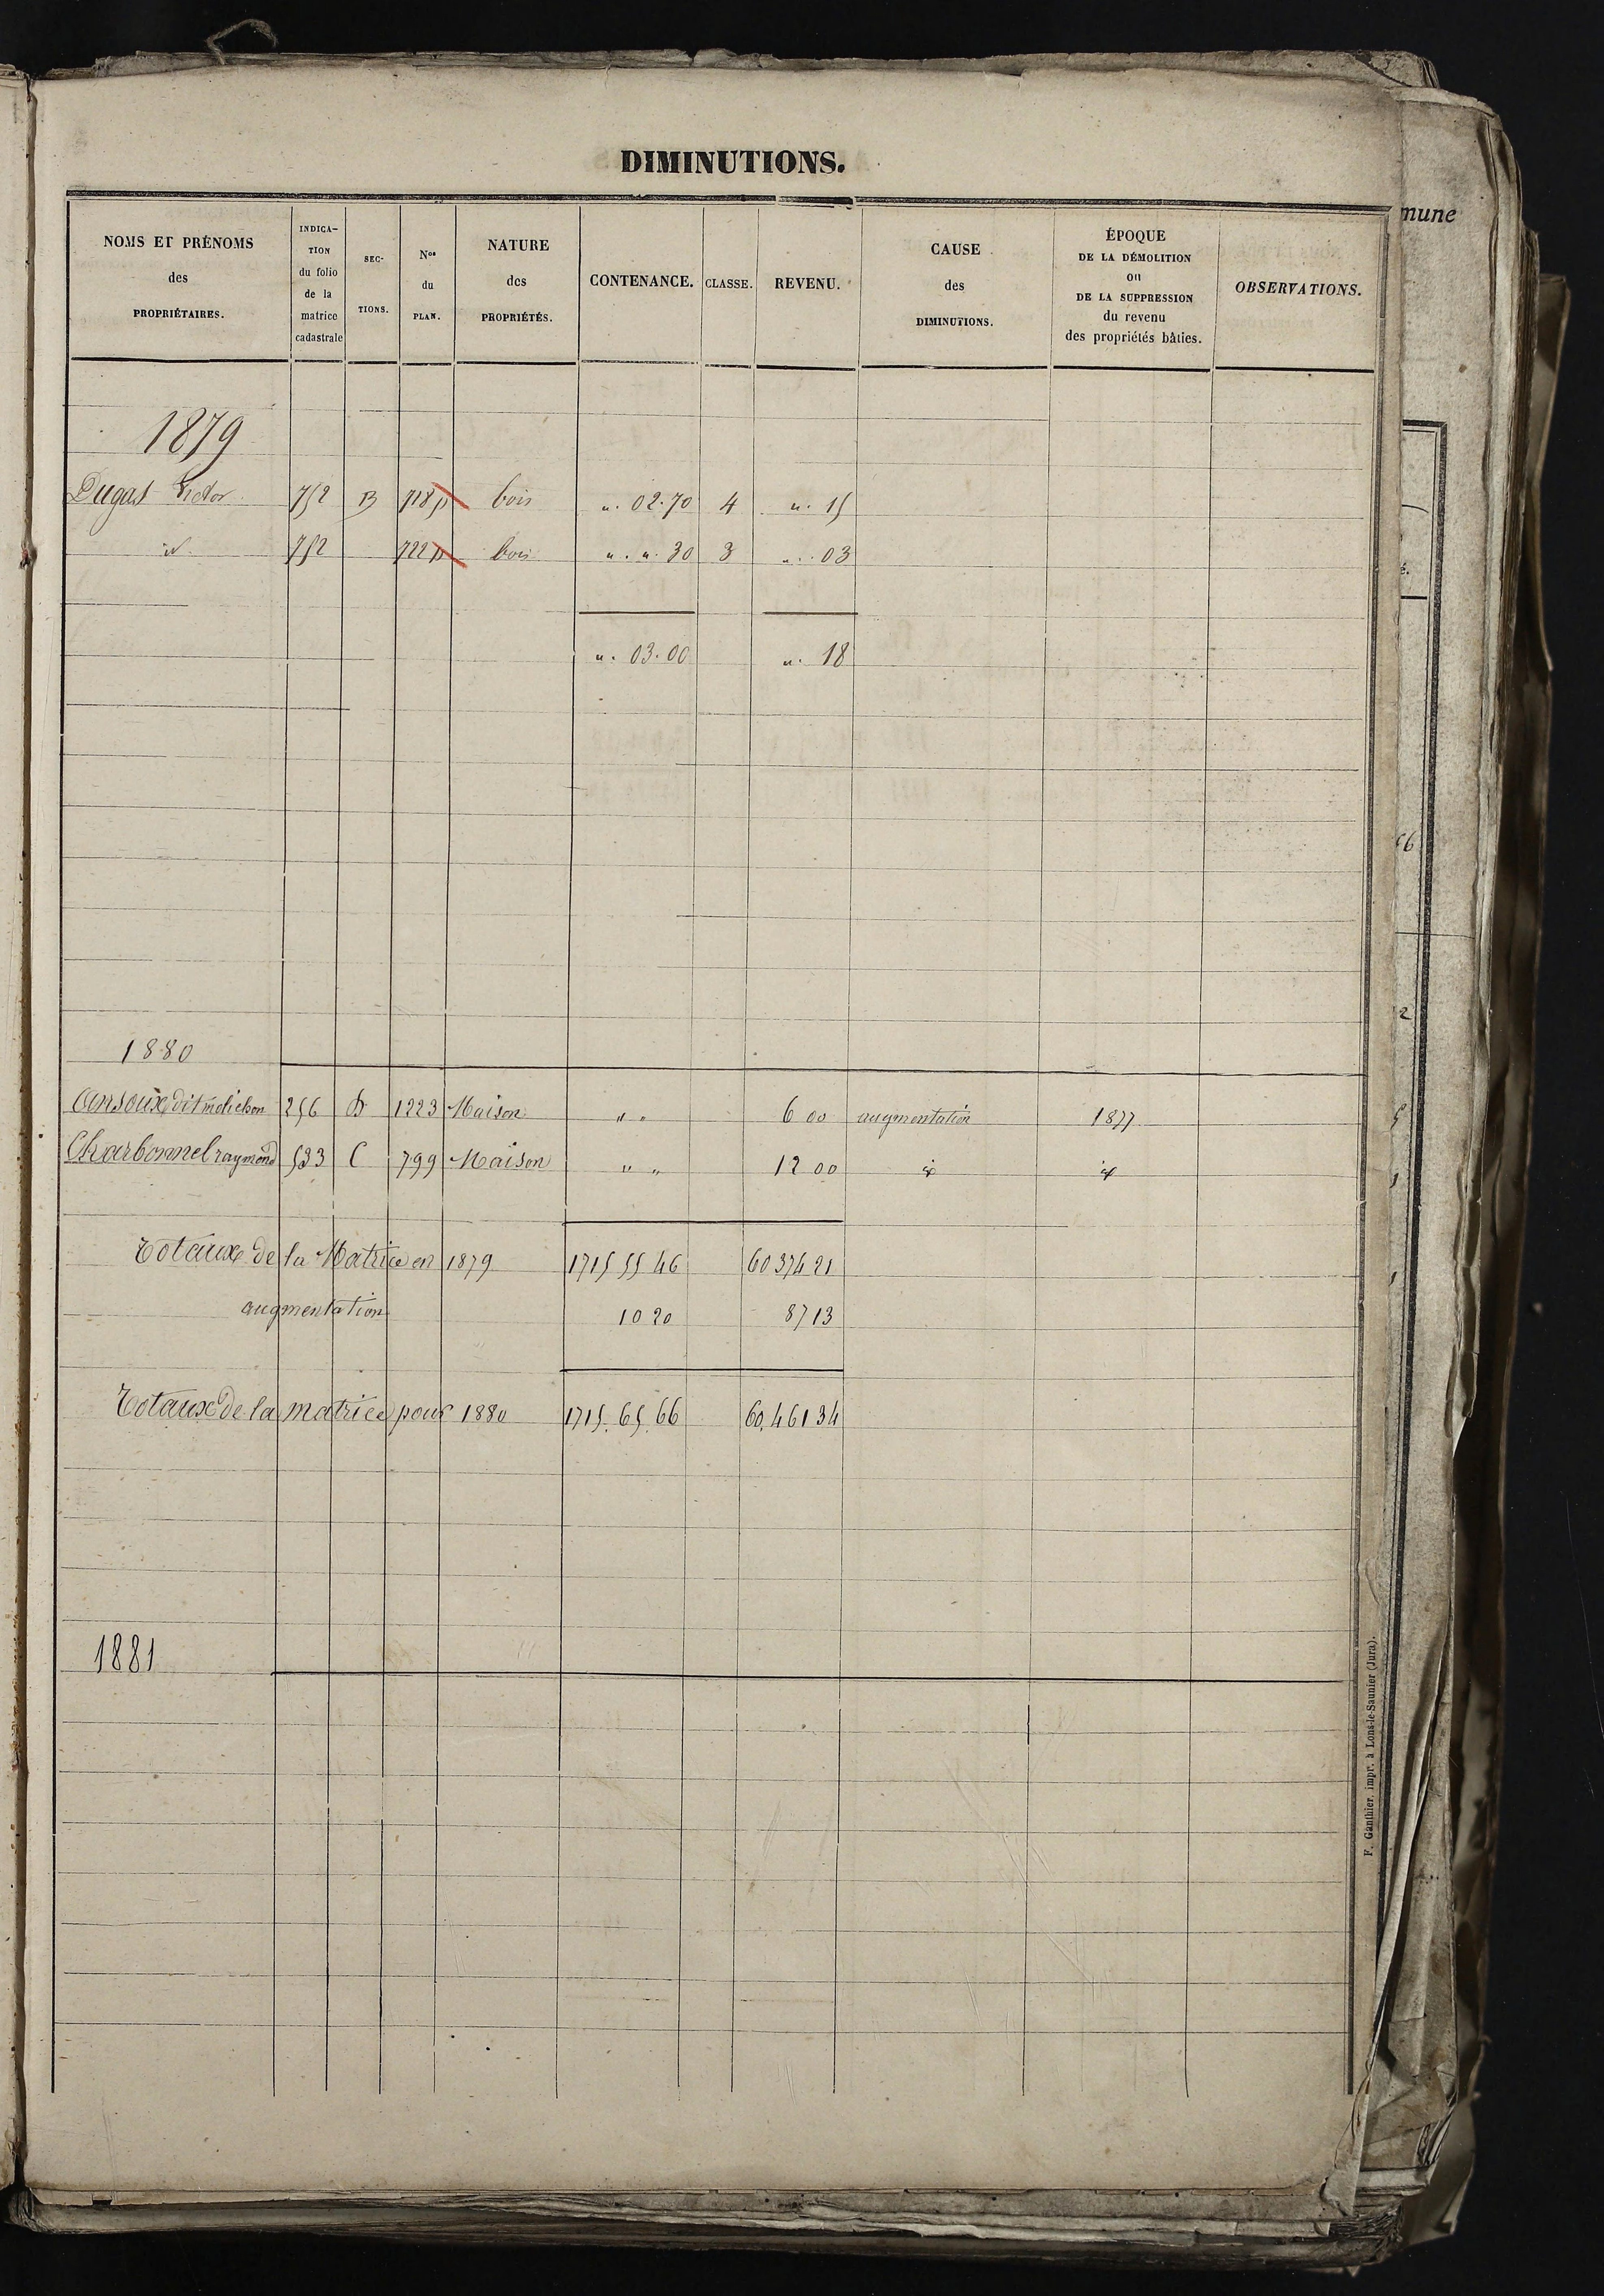 DIMINUTIONS.
NOMS ET PRÉNOMS des PROPRIÉTAIRES. | INDICA-TION du folio de la matrice cadastrale | SEC-TIONS. | Nos du PLAN. | NATURE des PROPRIÉTÉS. | CONTENANCE. | CLASSE. | REVENU. | CAUSE des DIMINUTIONS. | ÉPOQUE DE LA DÉMOLITION ou DE LA SUPPRESSION du revenu des propriétés bâties. | OBSERVATIONS.
1879
Dugas Victor 752 B 718 p bois ". 02.70 4 ". 15
id. 752 722 p bois ". ". 30 3 ". 03
". 03.00 ". 18
1880
dit melichon 256 D 1223 Maison " " 6 00 augmentation 1877
Charbonnel raymond 533 C 799 Maison " " 12 00 id id
Totaux de la Matrice en 1879 1715 55 46 60374 21
augmentation 10 20 87 13
Totaux de la matrice pour 1880 1715. 65. 66 60,461 34
1881
F. Gauthier, impr. à Lons-le-Saunier (Jura).
mune
é.
2